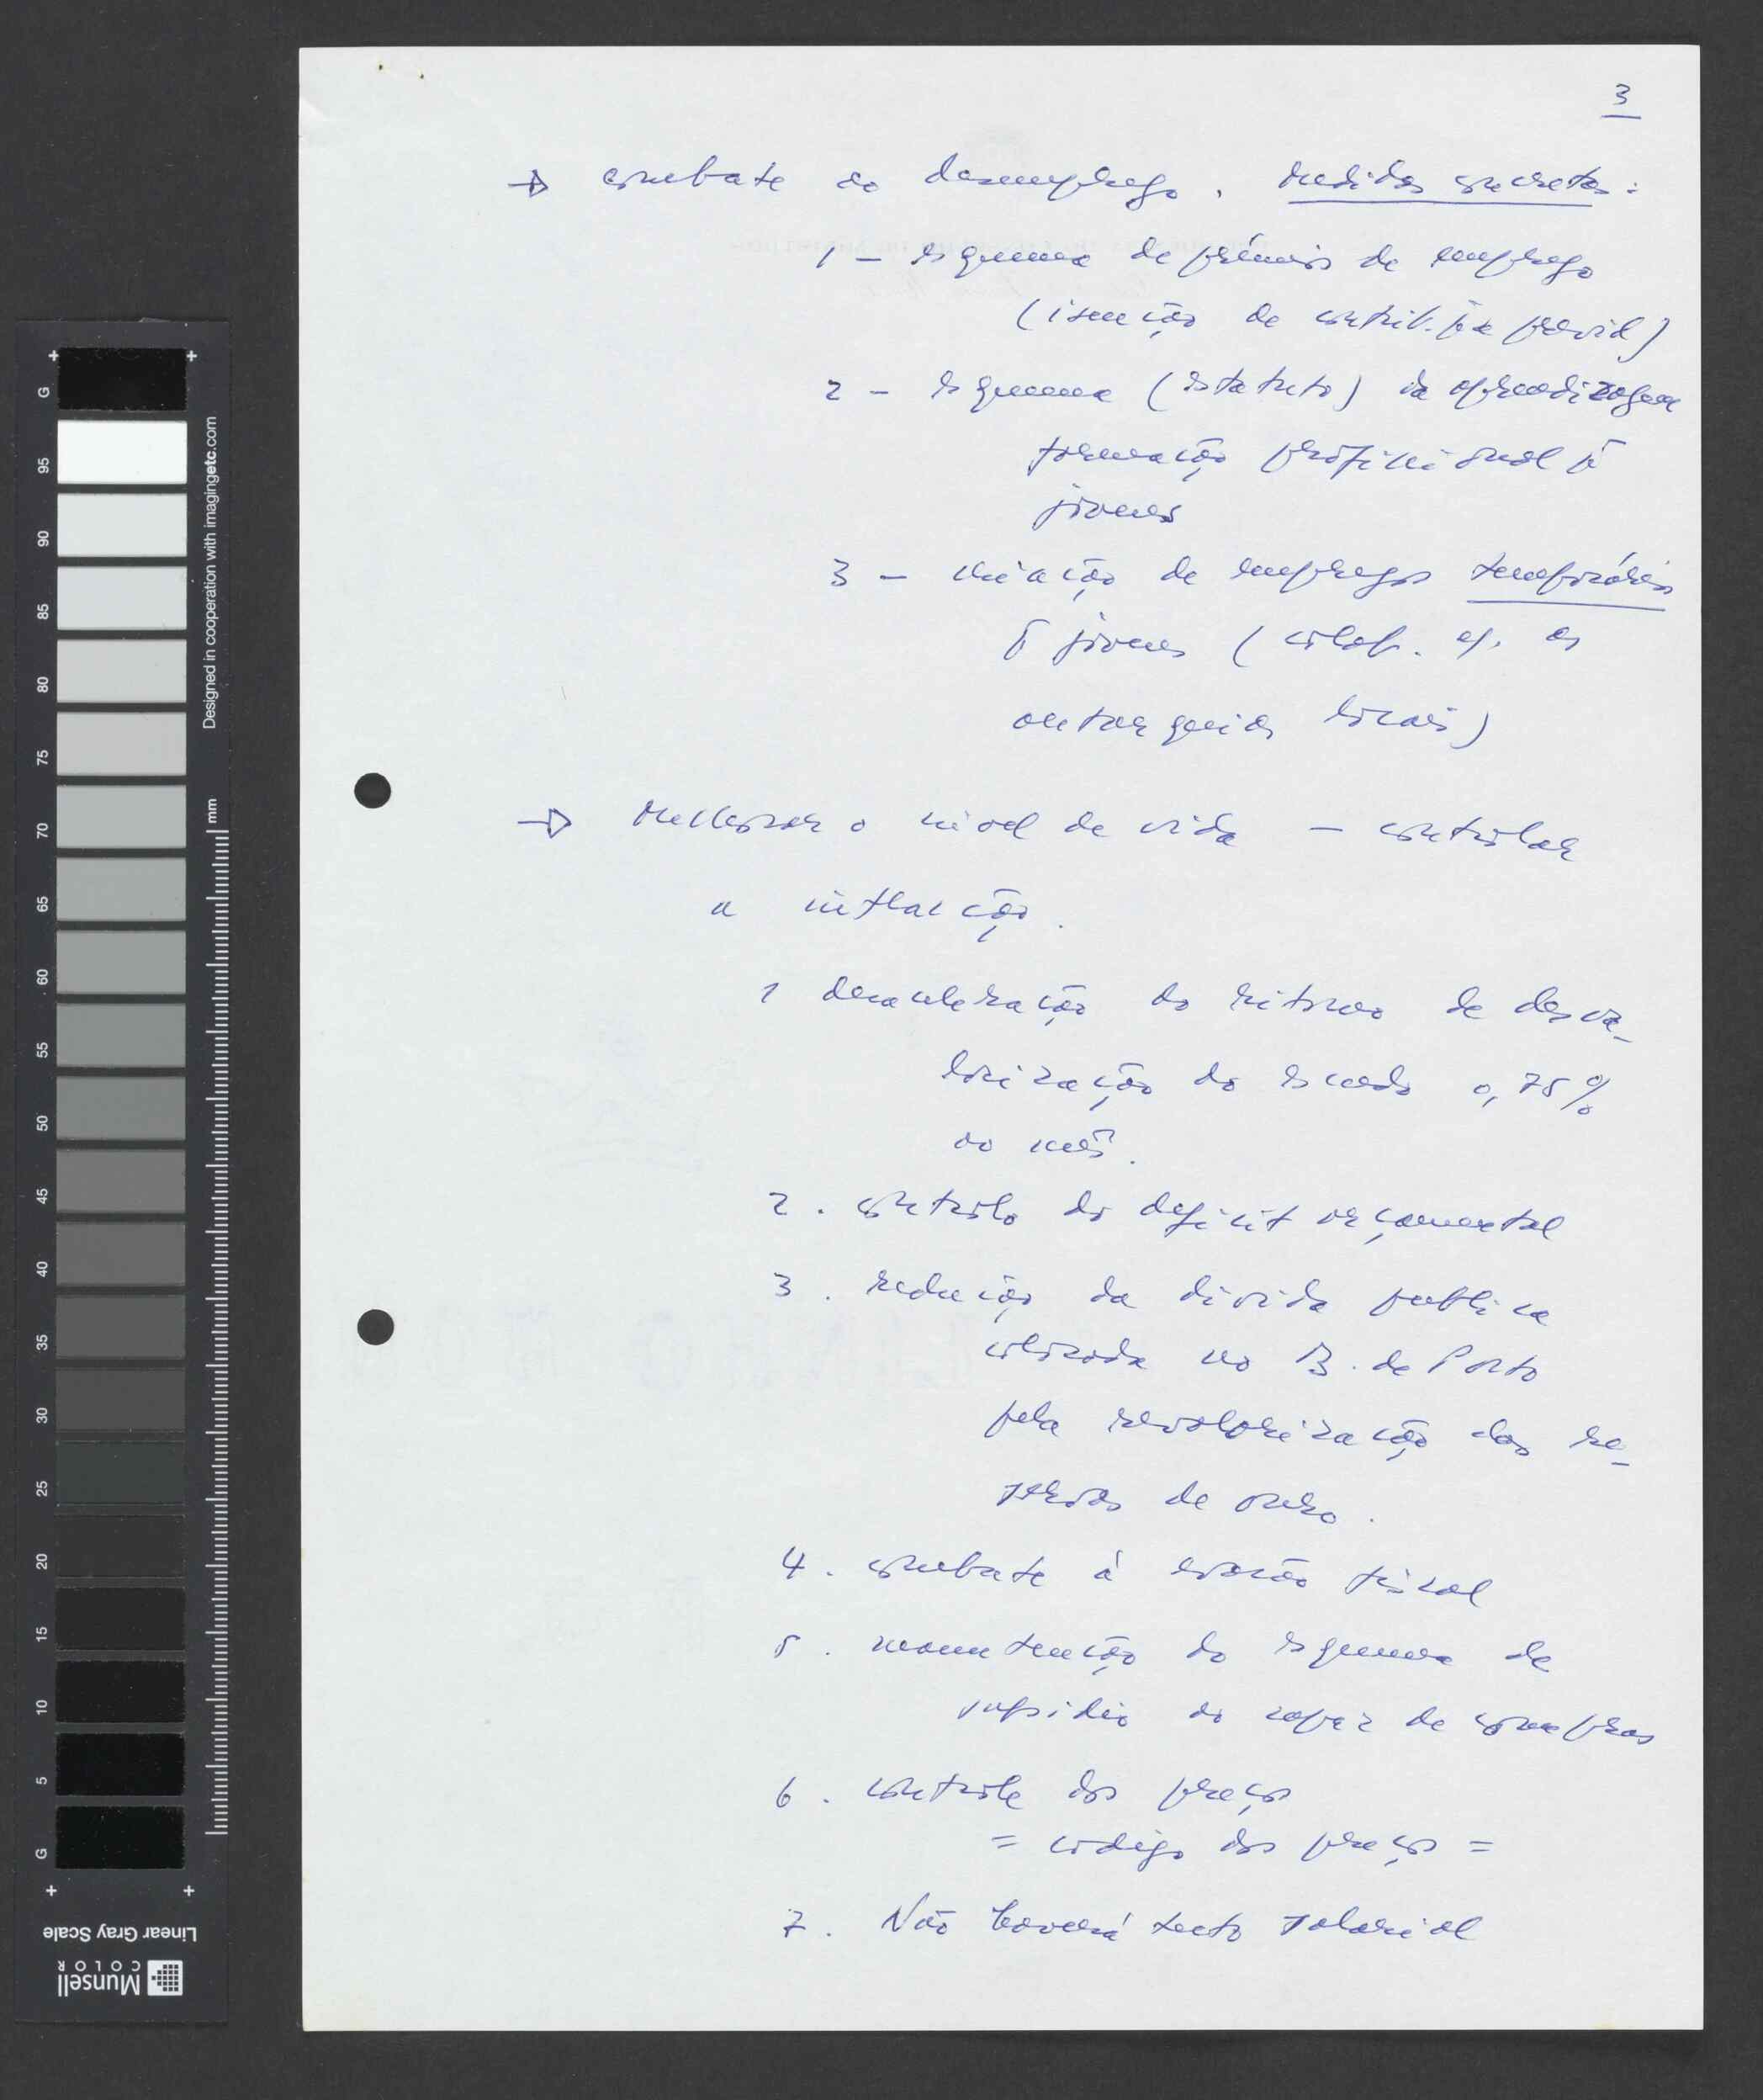 3
→ combate ao desemprego. Medidas concretas:
1 – esquema de prémios de emprego
(isenção de contrib. pª previd)
2 – esquema (estatuto) da aprendizagem
formação profissional pª
jovens
3 – criação de empregos temporários
pª jovens (colab. c/. as
autarquias locais)
→ Melhorar o nível de vida – controlar
a inflacção.
1 desaceleração do ritmo de desva-
lorização do escudo 0,75%
ao mês.
2. controlo do deficit orçamental
3. redução da divida publica
colocada no B. de Porto
pela revalorização das re-
servas de ouro.
4. combate à evasão fiscal
5. manutenção do esquema de
subsidio do cabaz de compras
6. controle dos preços
= codigo dos preços =
7. Não haverá tecto salarial
G
95
90
85
80
75
70
65
60
55
50
45
40
35
30
25
20
15
10
5
G
Designed in cooperation with imagingetc.com
mm
Linear Gray Scale
Munsell
COLOR